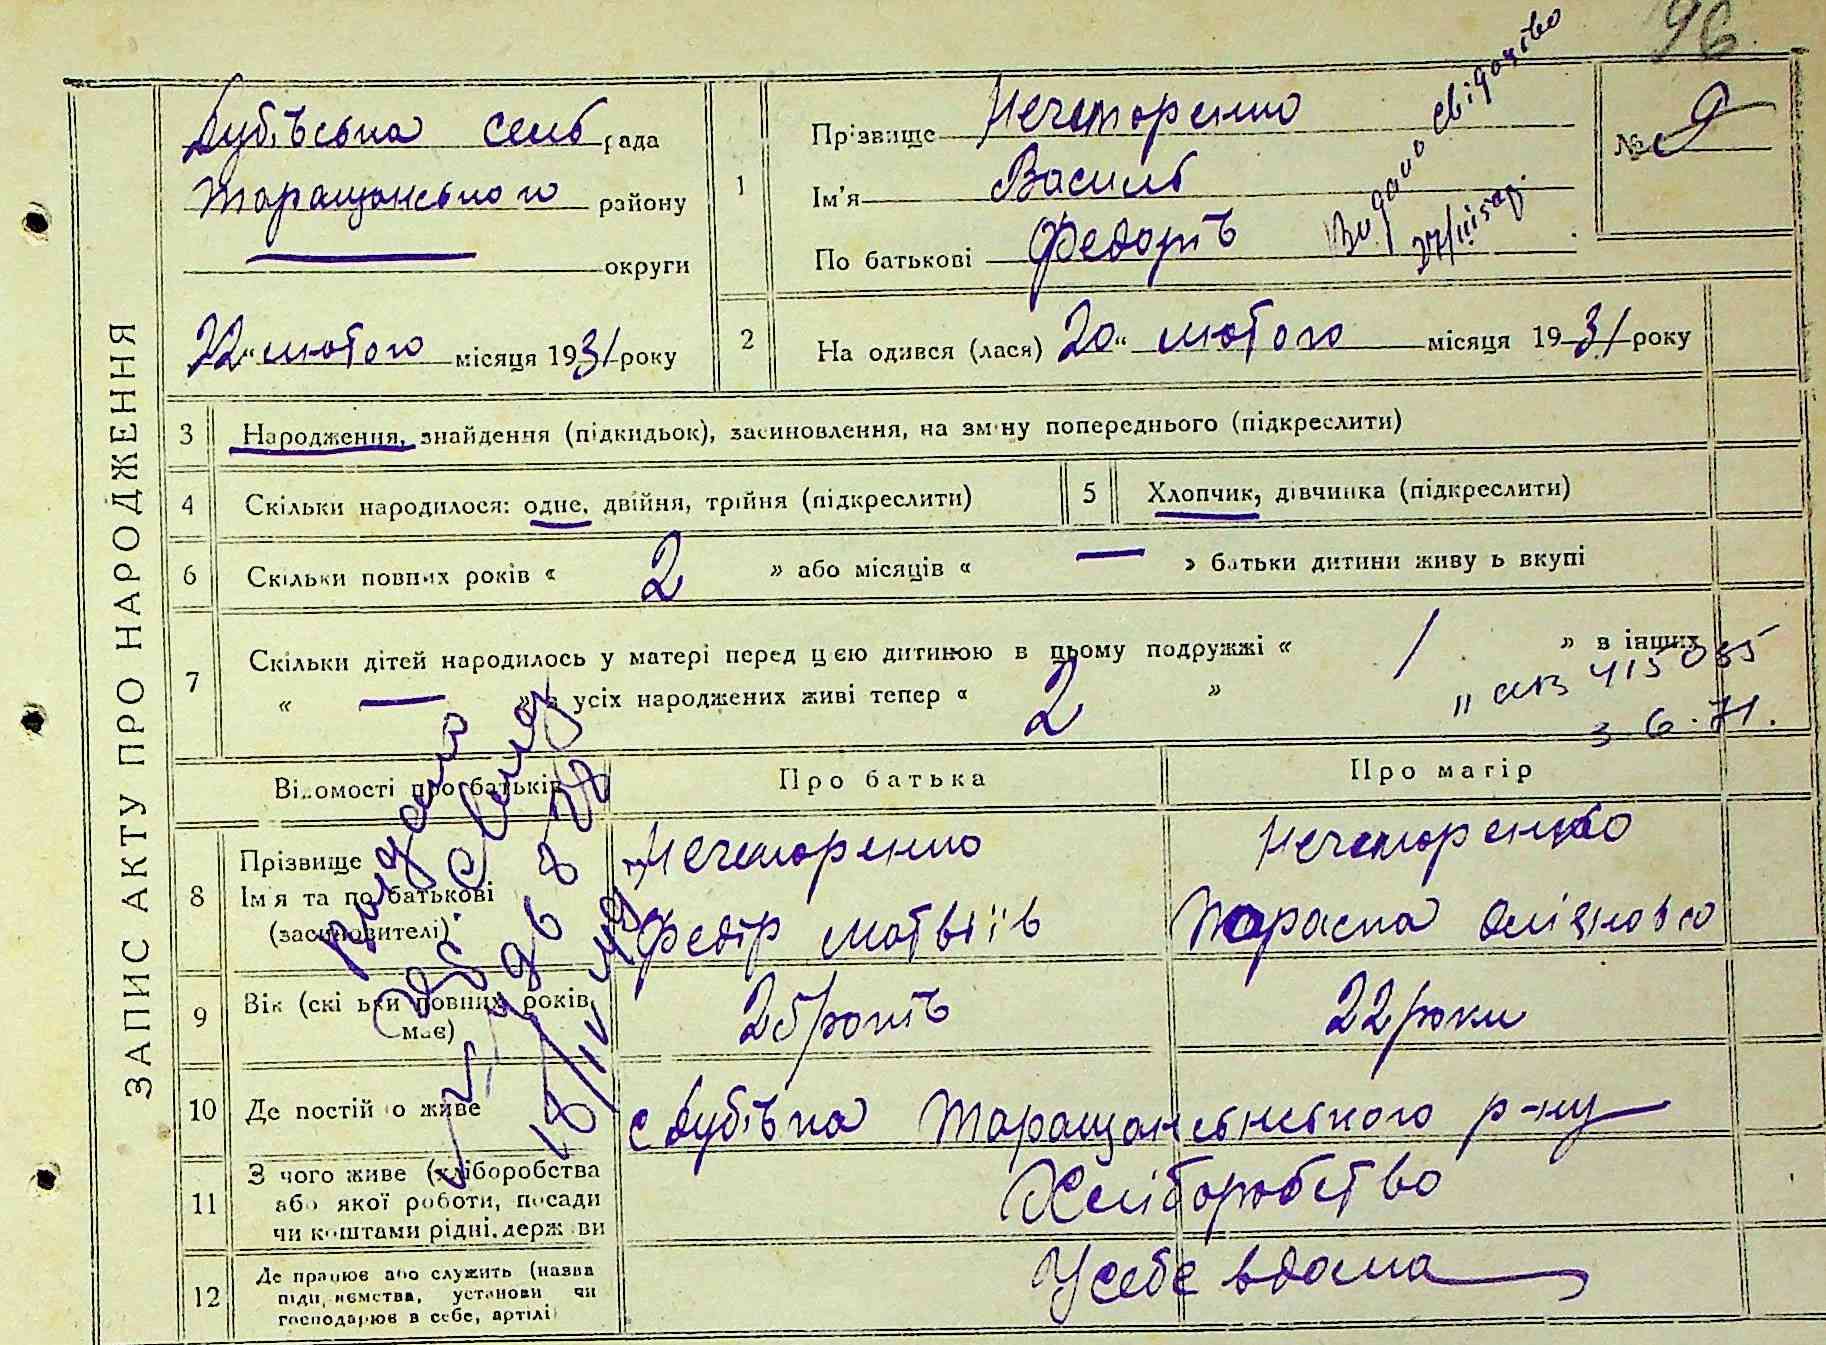 96
ЗАПИС АКТУ ПРО НАРОДЖЕННЯ
Дубівська сельрада
Таращанського району
округи
22 лютого місяця 1931 року
1
Прізвище Нечеторенко
Ім'я Василь
По батькові Федорів
Видано свідоцтво
№ 9
2
На одився (лася) 20 лютого місяця 1931 року
3 Народження, знайдення (підкидьок), засиновлення, на зміну попереднього (підкреслити)
4 Скільки народилося: одне, двійня, трійня (підкреслити)
5 Хлопчик, дівчинка (підкреслити)
6 Скільки повних років « 2 » або місяців « — » батьки дитини живу ь вкупі
7 Скільки дітей народилось у матері перед цією дитиною в цьому подружжі « 1 » в інших
« — » з усіх народжених живі тепер « 2 »
415035
3.6.71.
Відомості про батьків
Про батька
Про матір
8 Прізвище
Ім'я та по батькові
(засиновителі)
Нечеторенко
Федір Матвіїв
Нечеторенко
Параска
9 Вік (скільки повних років
має)
25 років
22 роки
10 Де постійно живе
с Дубівка Таращанського р-ну
11 З чого живе (хліборобства
або якої роботи, посади
чи коштами рідні, держави
Хліборобство
12 Де працює або служить (назва
підприємства, установи чи
господарює в себе, артілі)
У себе вдома